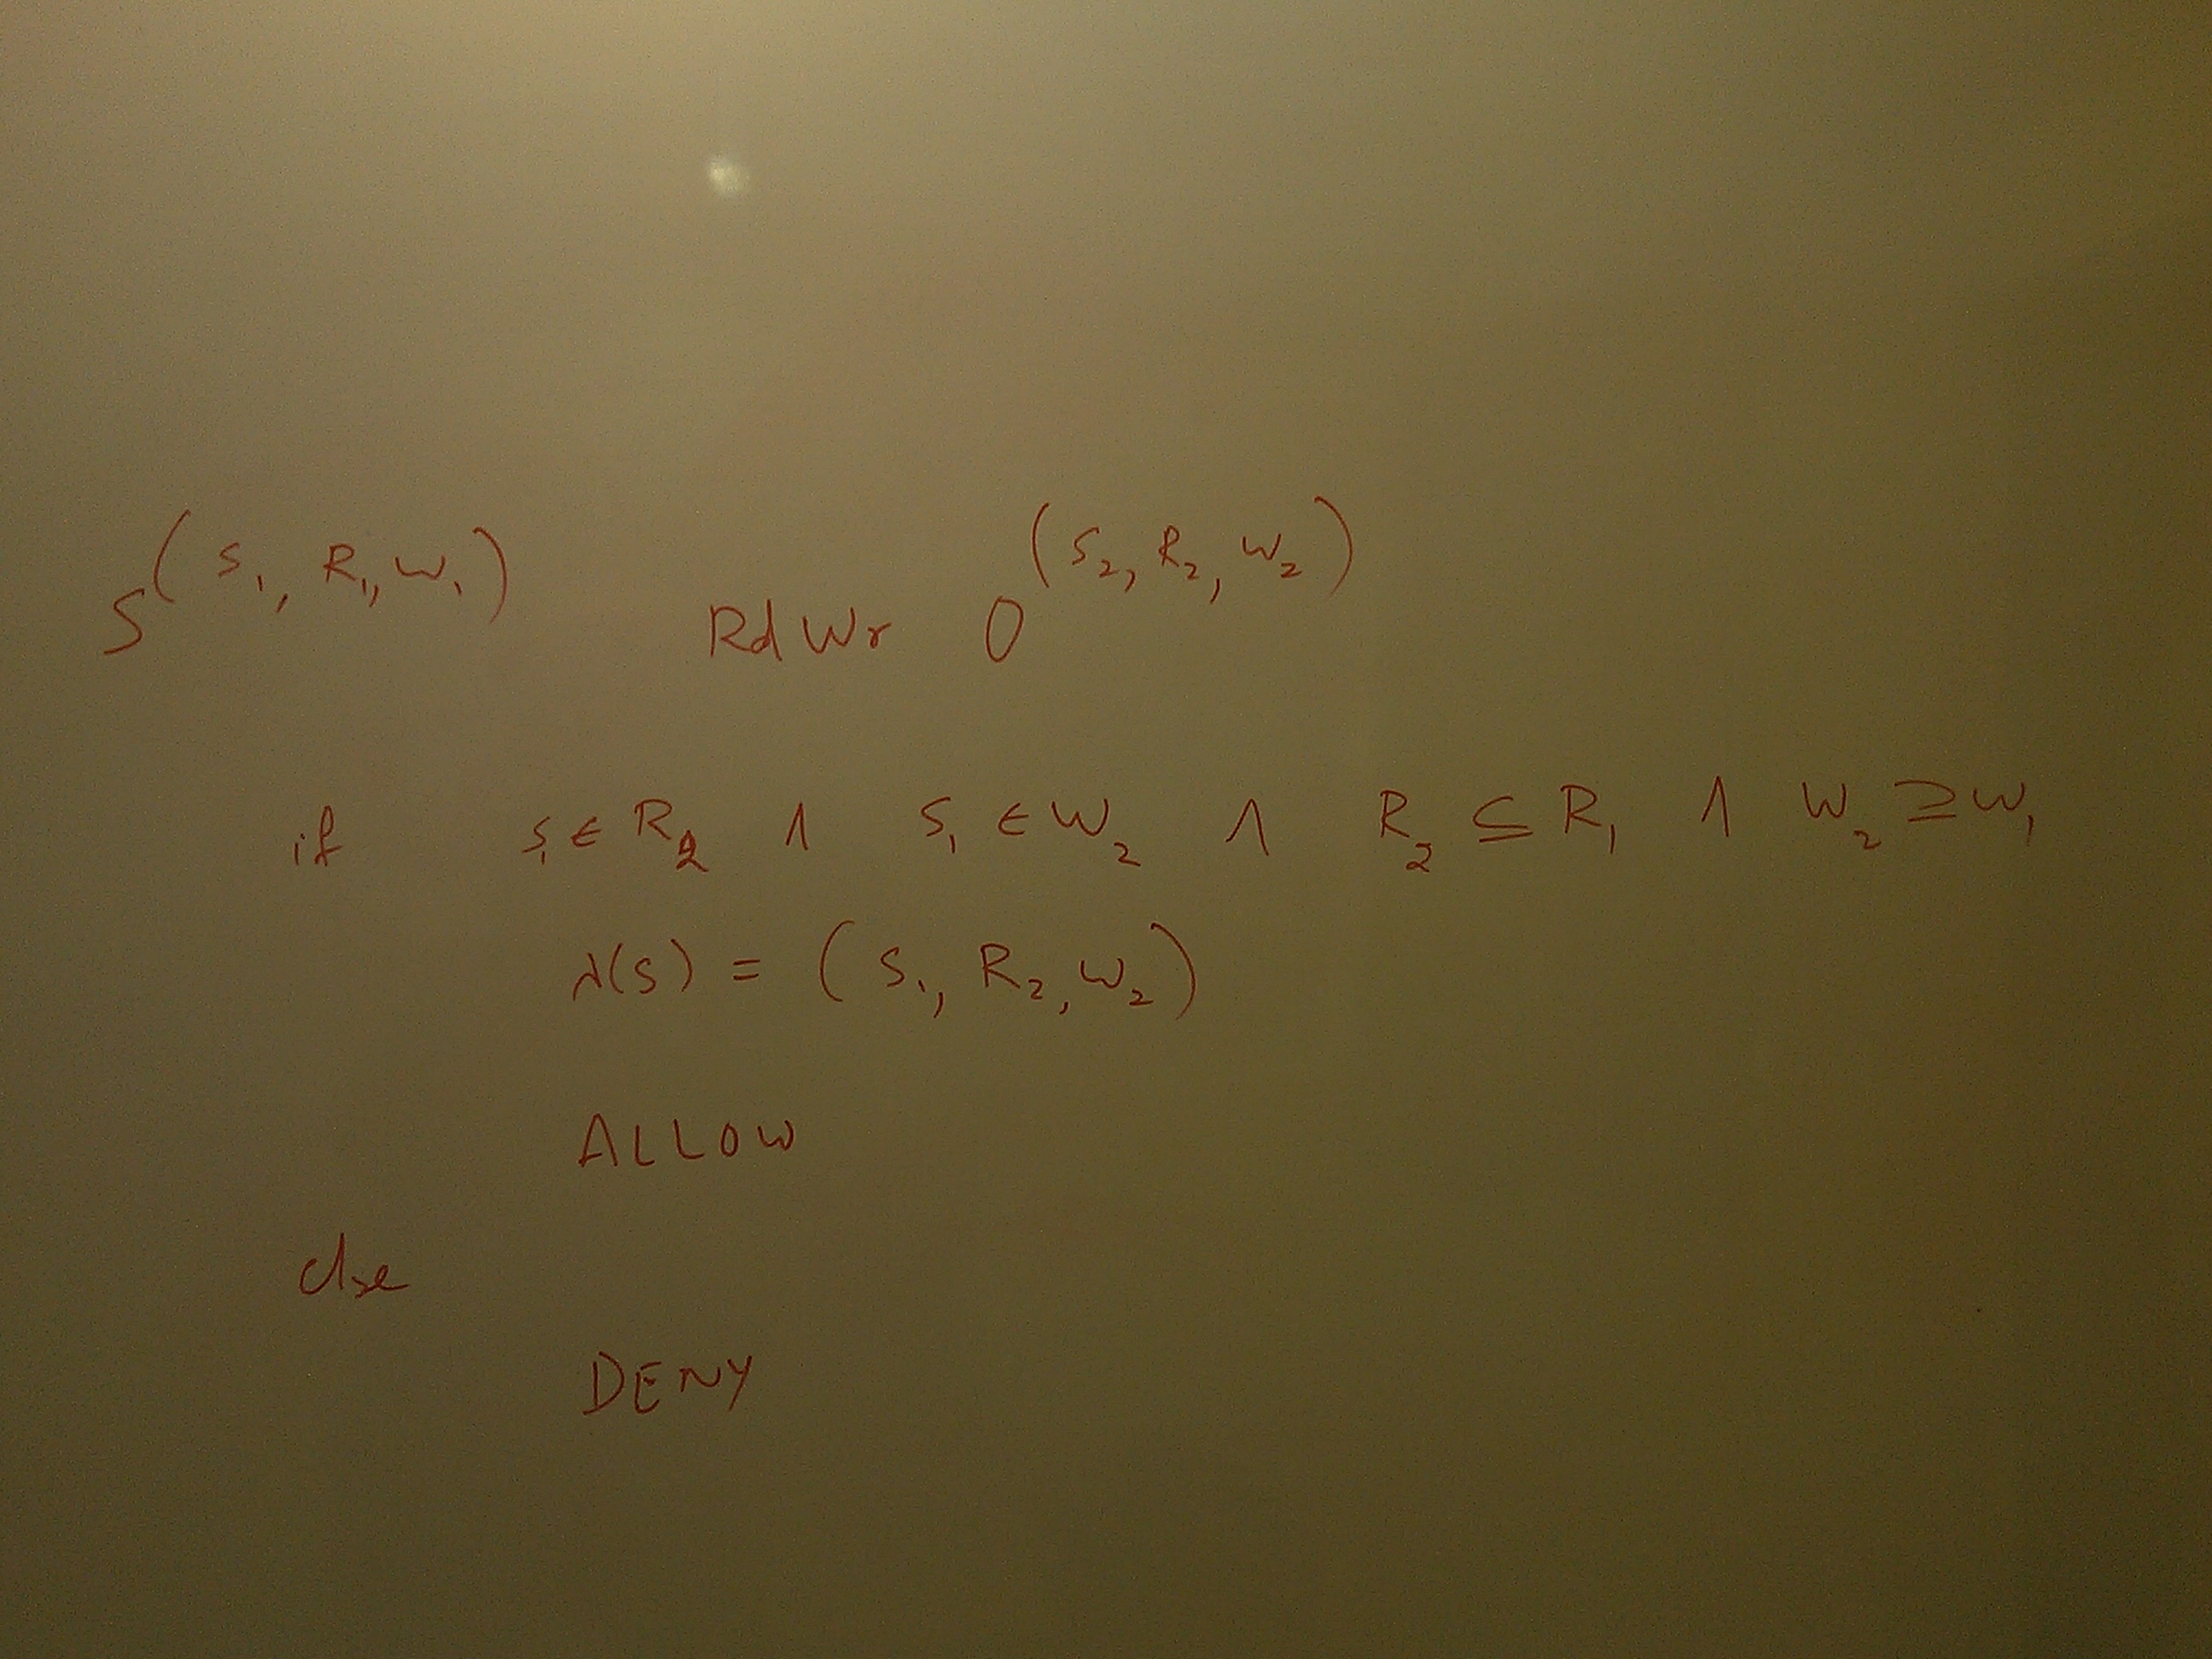 S^(s₁, R₁, W₁) RdWr O^(s₂, R₂, W₂)
if s₁ ∈ R₂ ∧ s₁ ∈ W₂ ∧ R₂ ⊆ R₁ ∧ W₂ ⊇ W₁
λ(s) = (s₁, R₂, W₂)
ALLOW
else
DENY